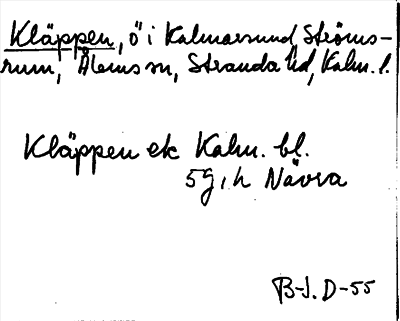 Kläppen, ö i Kalmarsund Ströms-
rum, Ålems sn, Stranda hd, Kalm. l.
Kläppen ek Kalm. bl.
5 g, h Növra
B-J. D-55